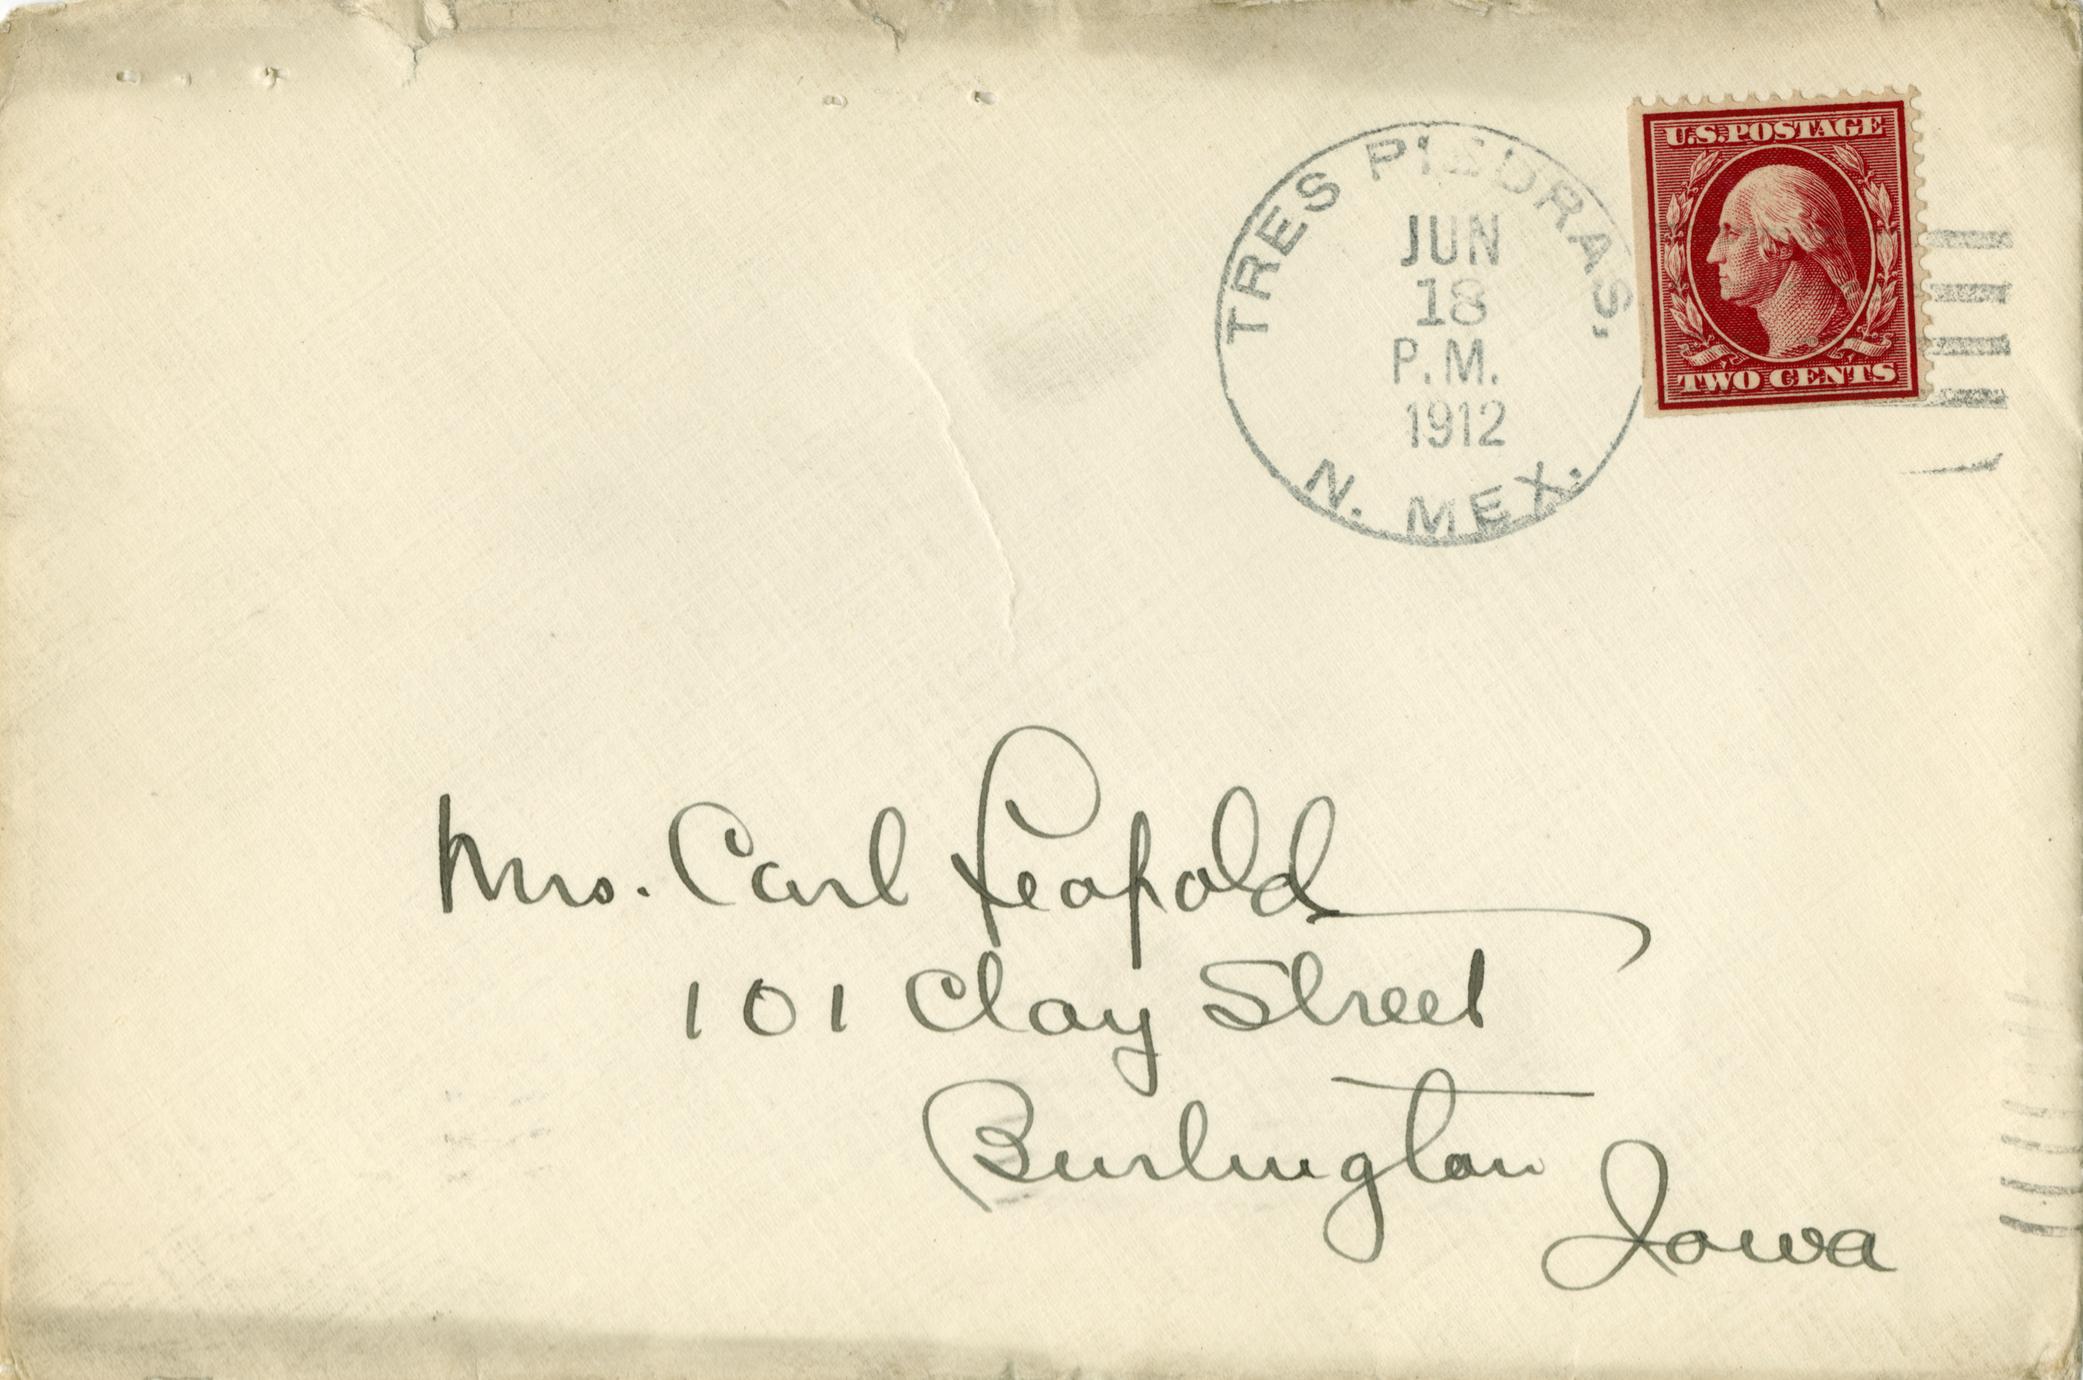 U.S. POSTAGE
TWO CENTS
TRES PIEDRAS,
JUN
18
P.M.
1912
N. MEX.
Mrs. Carl Leopold
101 Clay Street
Burlington
Iowa